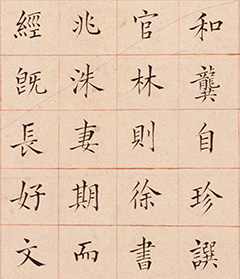 和龔自珍譔
官林則徐書
兆洙妻期而
經旣長好文